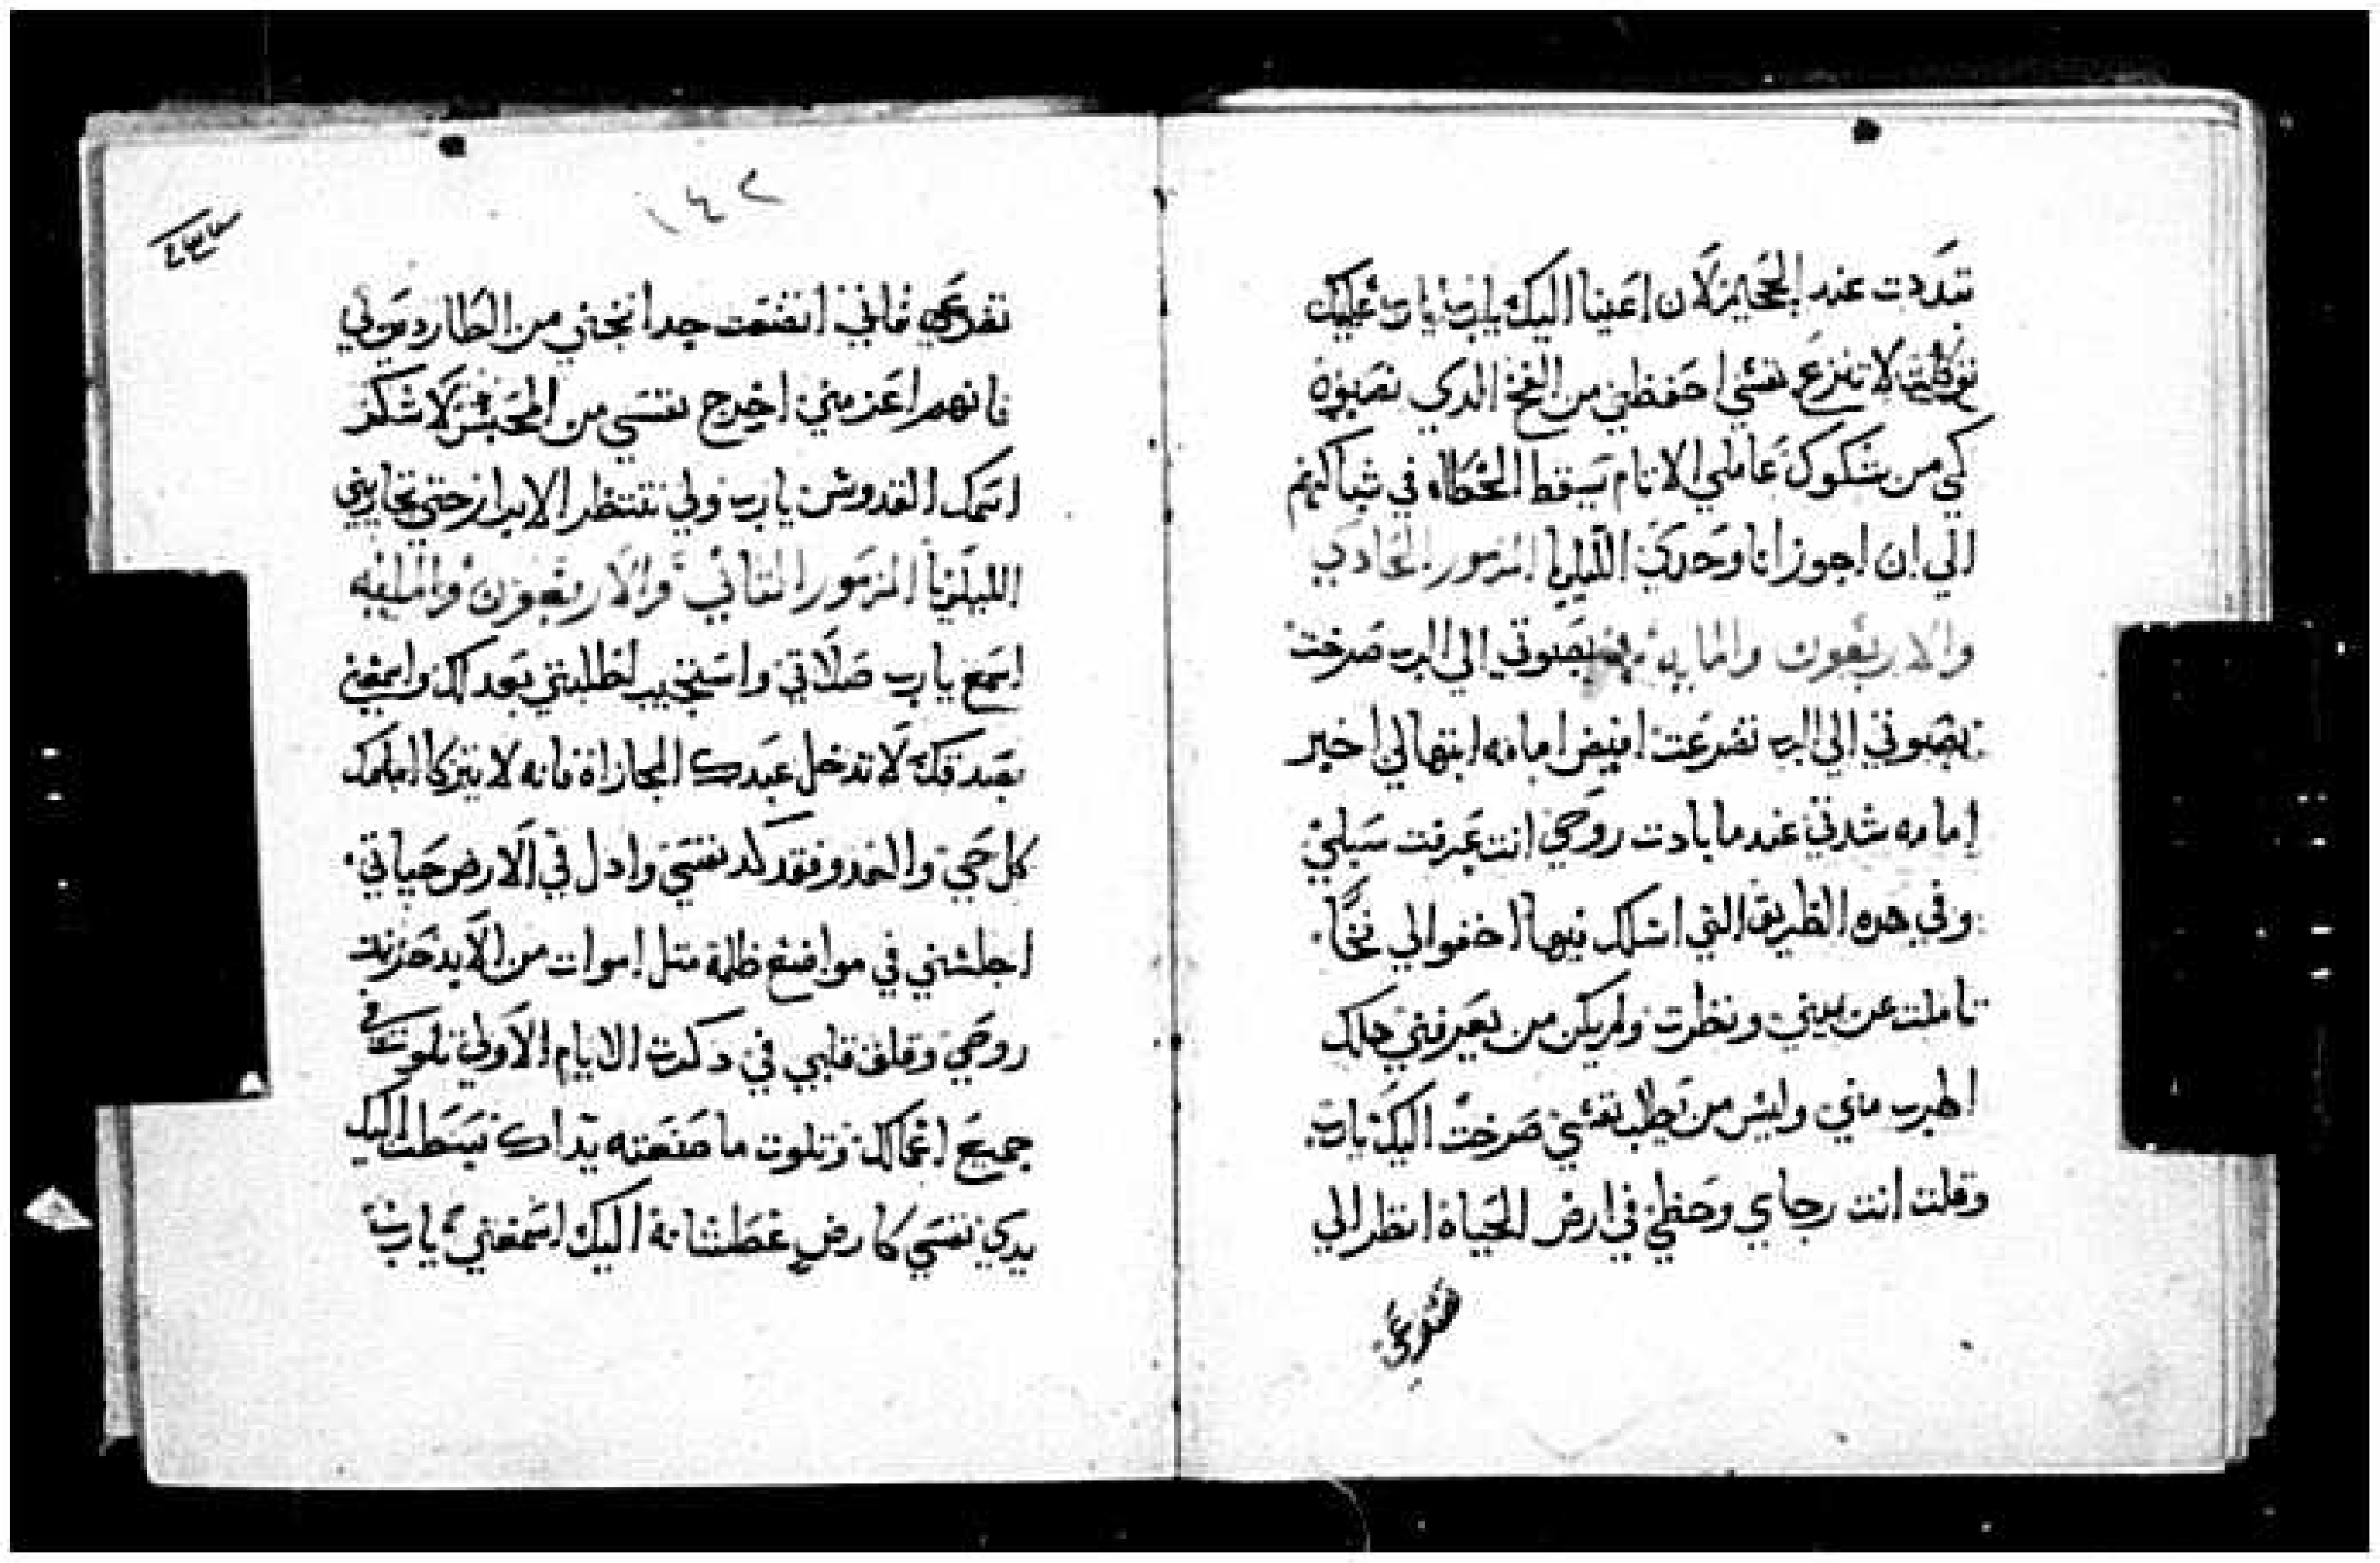 تبددت عند الجحيم لان اعيننا اليك يارب يارب عليك
توكلت لا تنزع نفسي احفظني من الفخ الدي نصبوه
لي من شكوك عاملي الاتام تسقط الخطاه في شباكهم
الي ان اجوز انا وحدي الليلويا المزمور الحادي
والاربعون والمايه بصوتي الي الرب صرخت
بصوتي الي الرب تضرعت افيض امامه ابتهالي اخبر
امامه شدتي عند ما بادت روحي انت عرفت سبلي
وفي هده الطريق التي اسلك فيها اخفوا لي فخا
تاملت عن يميني ونظرت ولم يكن من يعرفني هلك
الهرب مني وليس من يطلب نفسي صرخت اليك يارب
وقلت انت رجاي وحظي في ارض الحياة انظر الي
تضرعي
١٤٢
تضرعي فاني اتضعت جدا نجني من الطاردين لي
فانهم اعز مني اخرج نفسي من الحبس لاشكر
اسمك القدوس يارب ولي تنتظر الابرار حتي تجازيني
الليلويا المزمور التاني والاربعون والمايه
اسمع يارب صلاتي واستجيب لطلبتي بعدلك واسمعني
بصدقك لا تدخل عبدك المجازاة فانه لا يتزكا امامك
كل حي والعدو فقد كد نفسي وادل في الارض حياتي
اجلسني في مواضع ظلمة متل اموات من الابد حزنت
روحي وقلق قلبي في دكرت الايام الاولي تلوت في
جميع اعمالك وتلوت ما صنعته يداك بسطت اليك
يدي نفسي كارض عطشانة اليك اسمعني يارب